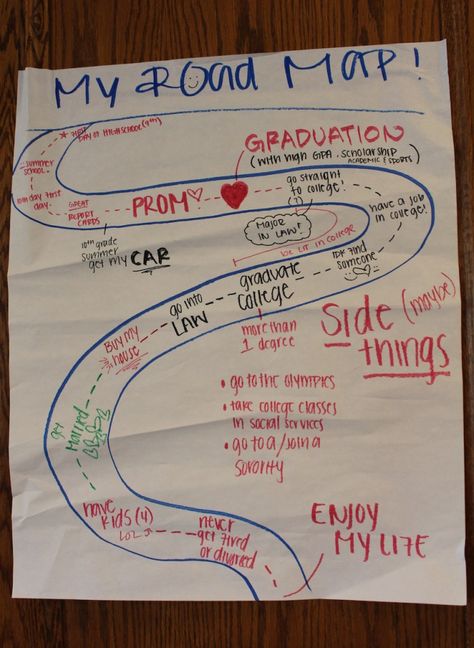 MY ROAD MAP!
DAY OF HIGH SCHOOL (9TH)
summer
school
10th day first
day
GREAT
REPORT
CARDS
10th grade
summer
get my CAR
PROM
GRADUATION
(with high GPA, scholarship
ACADEMIC & SPORTS)
go straight
to college!
have a job
in college!
MAJOR
IN LAW?
BE LIT IN COLLEGE
IDK FIND
someone
graduate
college
more than
1 degree
go into
LAW
BUY MY
house
get
Married
have
kids (4)
LOL JK
never
get fired
or divorced
ENJOY
MY LIFE
Side (maybe)
things
• go to the OLYMPICS
• take college classes
in social services
• go to a / join a
sorority